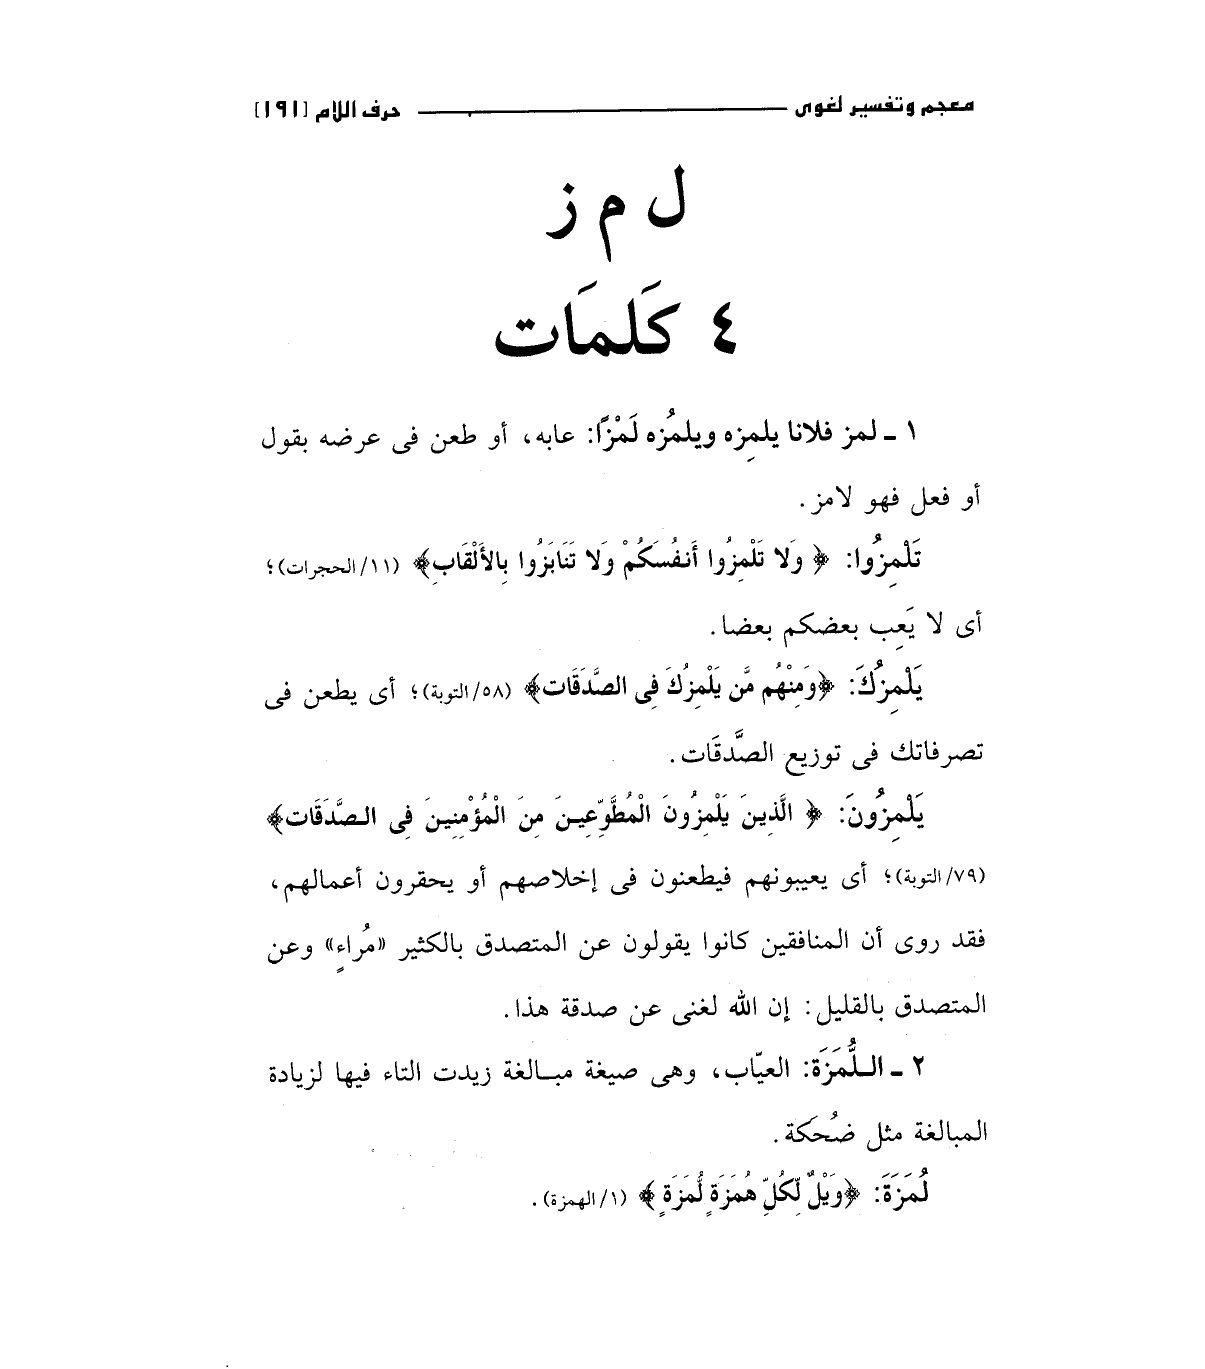 معجم وتفسير لغوى ـــــــــ حرف اللام [١٩١]
ل م ز
٤ كَلمَات
١ ـ لمز فلانا يلمِزه ويلمُزه لَمْزًا: عابه، أو طعن فى عرضه بقول
أو فعل فهو لامز.
تَلْمِزُوا: ﴿ وَلا تَلْمِزُوا أَنفُسَكُمْ وَلا تَنَابَزُوا بِالأَلْقَابِ﴾ (١١/الحجرات)؛
أى لا يَعِب بعضكم بعضا.
يَلْمِزُكَ: ﴿وَمِنْهُم مَّن يَلْمِزُكَ فِى الصَّدَقَات﴾ (٥٨/التوبة)؛ أى يطعن فى
تصرفاتك فى توزيع الصَّدقَات.
يَلْمِزُونَ: ﴿ الَّذِينَ يَلْمِزُونَ الْمُطَّوِّعِينَ مِنَ الْمُؤْمِنِينَ فِى الصَّدَقَات﴾
(٧٩/التوبة)؛ أى يعيبونهم فيطعنون فى إخلاصهم أو يحقرون أعمالهم،
فقد روى أن المنافقين كانوا يقولون عن المتصدق بالكثير «مُراءٍ» وعن
المتصدق بالقليل: إن الله لغنى عن صدقة هذا.
٢ ـ اللُّمَزَة: العيّاب، وهى صيغة مبالغة زيدت التاء فيها لزيادة
المبالغة مثل ضُحَكة.
لُمَزَةَ: ﴿وَيْلٌ لِّكُلِّ هُمَزَةٍ لُّمَزَةٍ ﴾ (١/الهمزة).